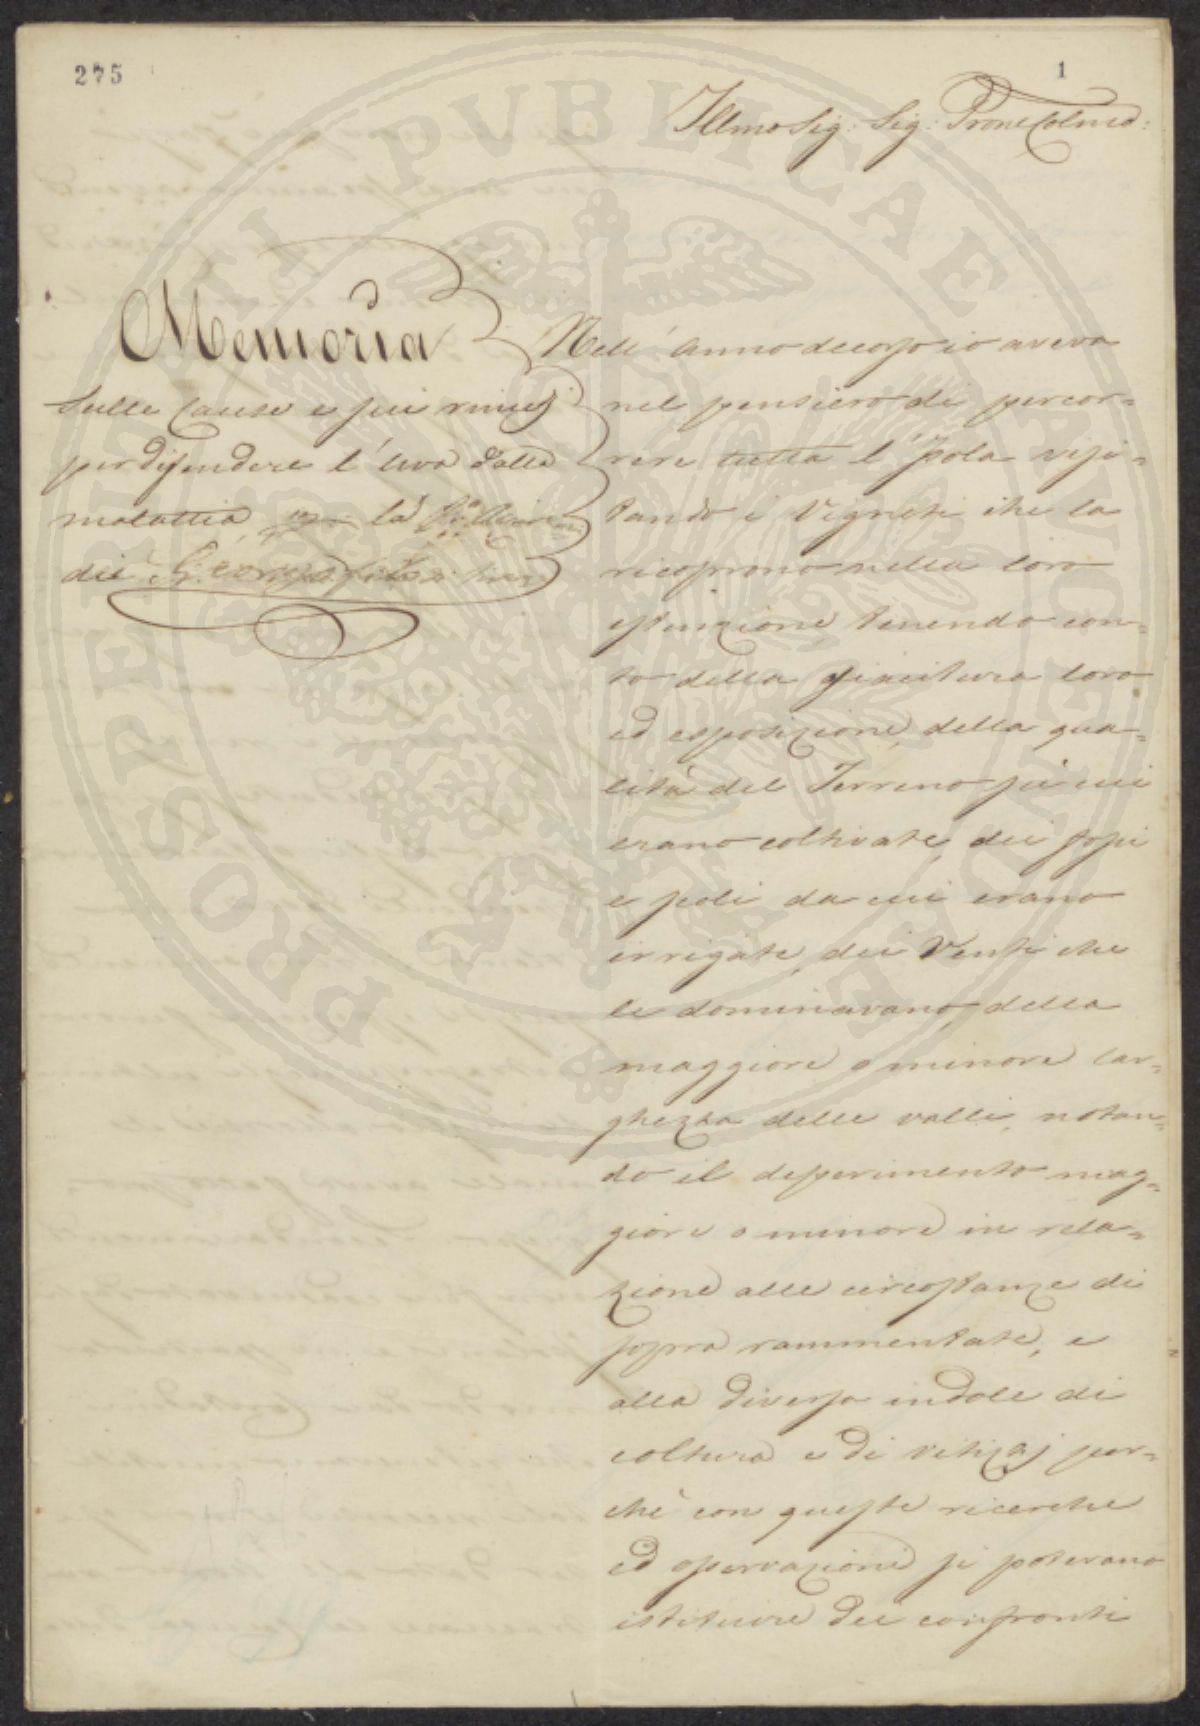 275
1
Illmo Sig: Sig: Prone Colmo:
Memoria
Sulle Cause e sui rimedj
per difendere l'uva dalla
malattia, per la R.a
dei Georgofili
Nell'Anno decorso io aveva
nel pensiero di percor=
rere tutta l'Isola visi=
tando i Vigneti che la
ricoprono nella loro
estenzione tenendo con=
to della giacitura loro
ed esposizione, della qua=
lità del Terreno in cui
erano coltivate, dei fossi
e scoli da cui erano
irrigate, dei Venti che
le dominavano, della
maggiore o minore lar=
ghezza delle valli, notan=
do il deperimento mag=
giore o minore in rela=
zione alle circostanze di
sopra rammentate, e
alla diversa indole di
coltura e di vitizaj per=
chè con queste ricerche
ed osservazioni si potevano
istituire dei confronti
PROSPERITATI PVBLICAE AVGENDAE